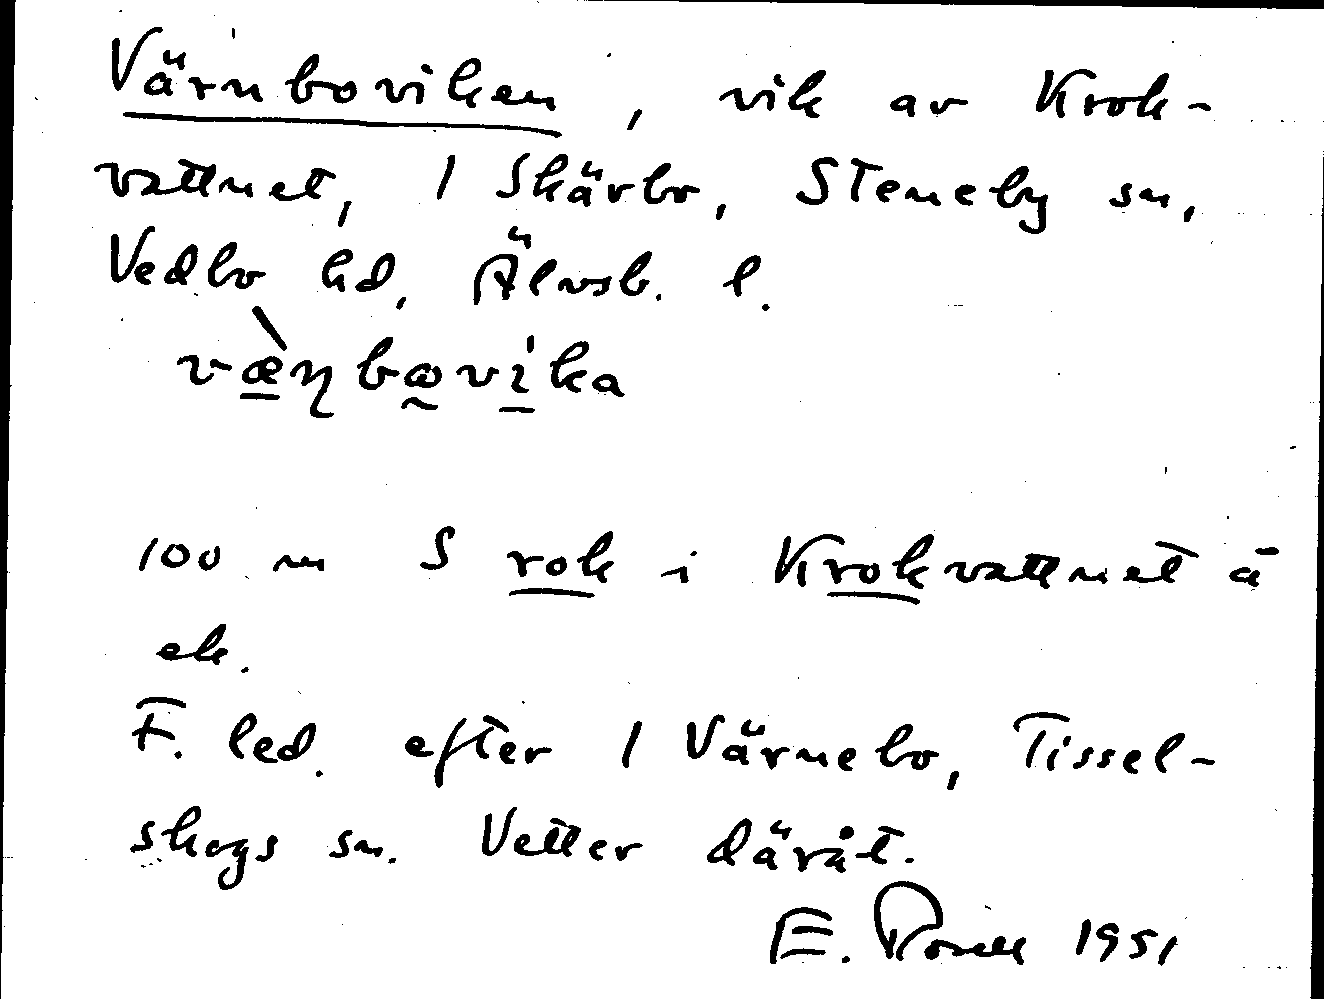 Värnboviken, vik av Krok-
vattnet, 1 Skärbo, Steneby sn,
Vedbo hd, Älvsb. l.
væ̀ɳbωvika
100 m S rok i Krokvattnet å
ek.
F. led. efter 1 Värnebo, Tissel-
skogs sn. Vetter däråt.
E. 1951